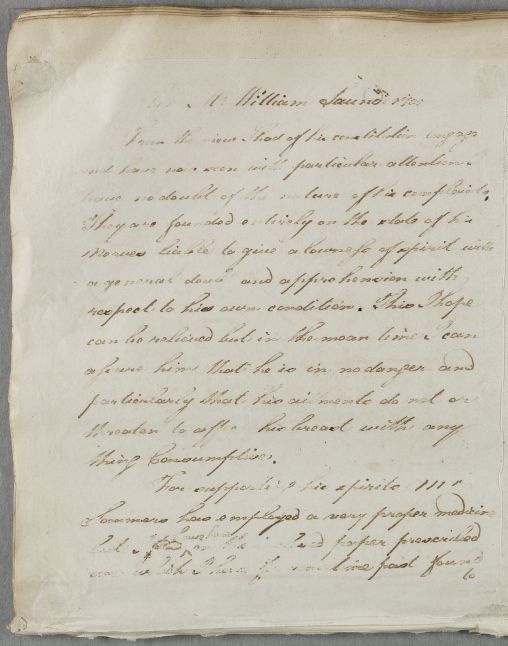 Mr William Saunders
From the view I had of his constitution
and have now seen with particular attention I
have no doubt of the nature of his complaints.
They are founded entirely on the state of his
Nerves liable to give a lowness of spirit with
a general and apprehension with
respect to his own condition. This I hope
can be relieved but in the mean time I can
assure him that he is in no danger and
particularly that his ailments do not
threaten to his breast with any
thing Consumptive.
For supporting his spirits Mr
Sommers has employed a very proper medicine
but paper prescribed
which I have time past found
to